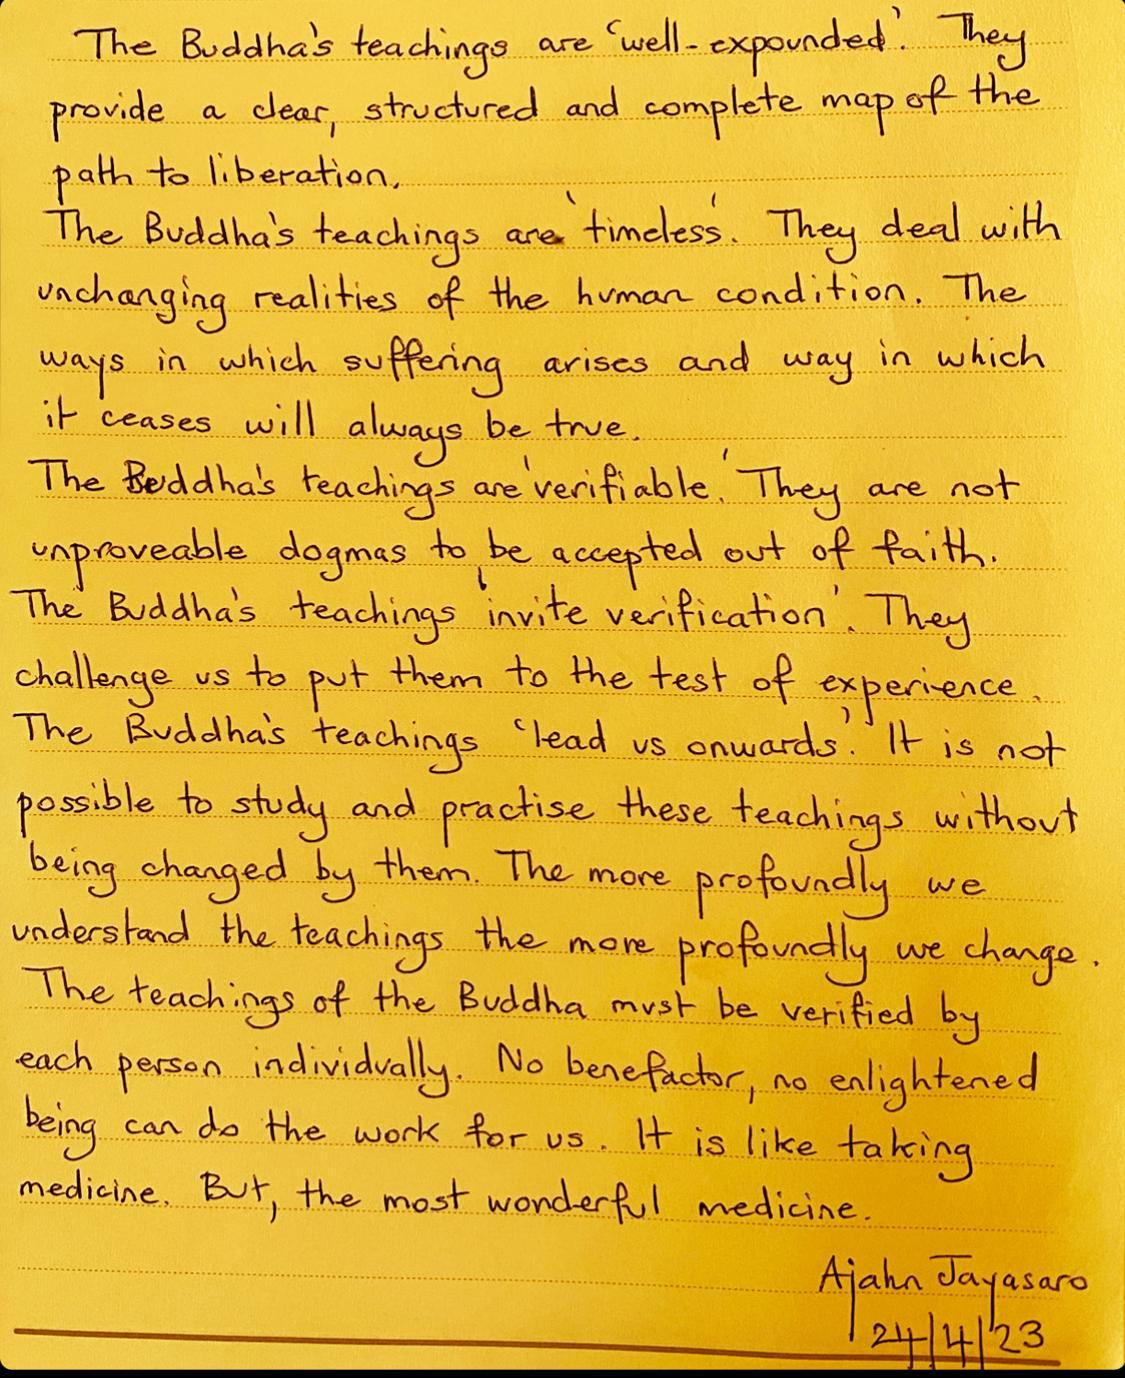 The Buddha's teachings are 'well-expounded'. They
provide a clear, structured and complete map of the
path to liberation.
The Buddha's teachings are 'timeless'. They deal with
unchanging realities of the human condition. The
ways in which suffering arises and way in which
it ceases will always be true.
The Buddha's teachings are 'verifiable.' They are not
unproveable dogmas to be accepted out of faith.
The Buddha's teachings 'invite verification'. They
challenge us to put them to the test of experience.
The Buddha's teachings 'lead us onwards'. It is not
possible to study and practise these teachings without
being changed by them. The more profoundly we
understand the teachings the more profoundly we change.
The teachings of the Buddha must be verified by
each person individually. No benefactor, no enlightened
being can do the work for us. It is like taking
medicine. But, the most wonderful medicine.
Ajahn Jayasaro
24/4/23